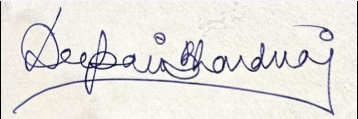 Deepain Bhardwaj